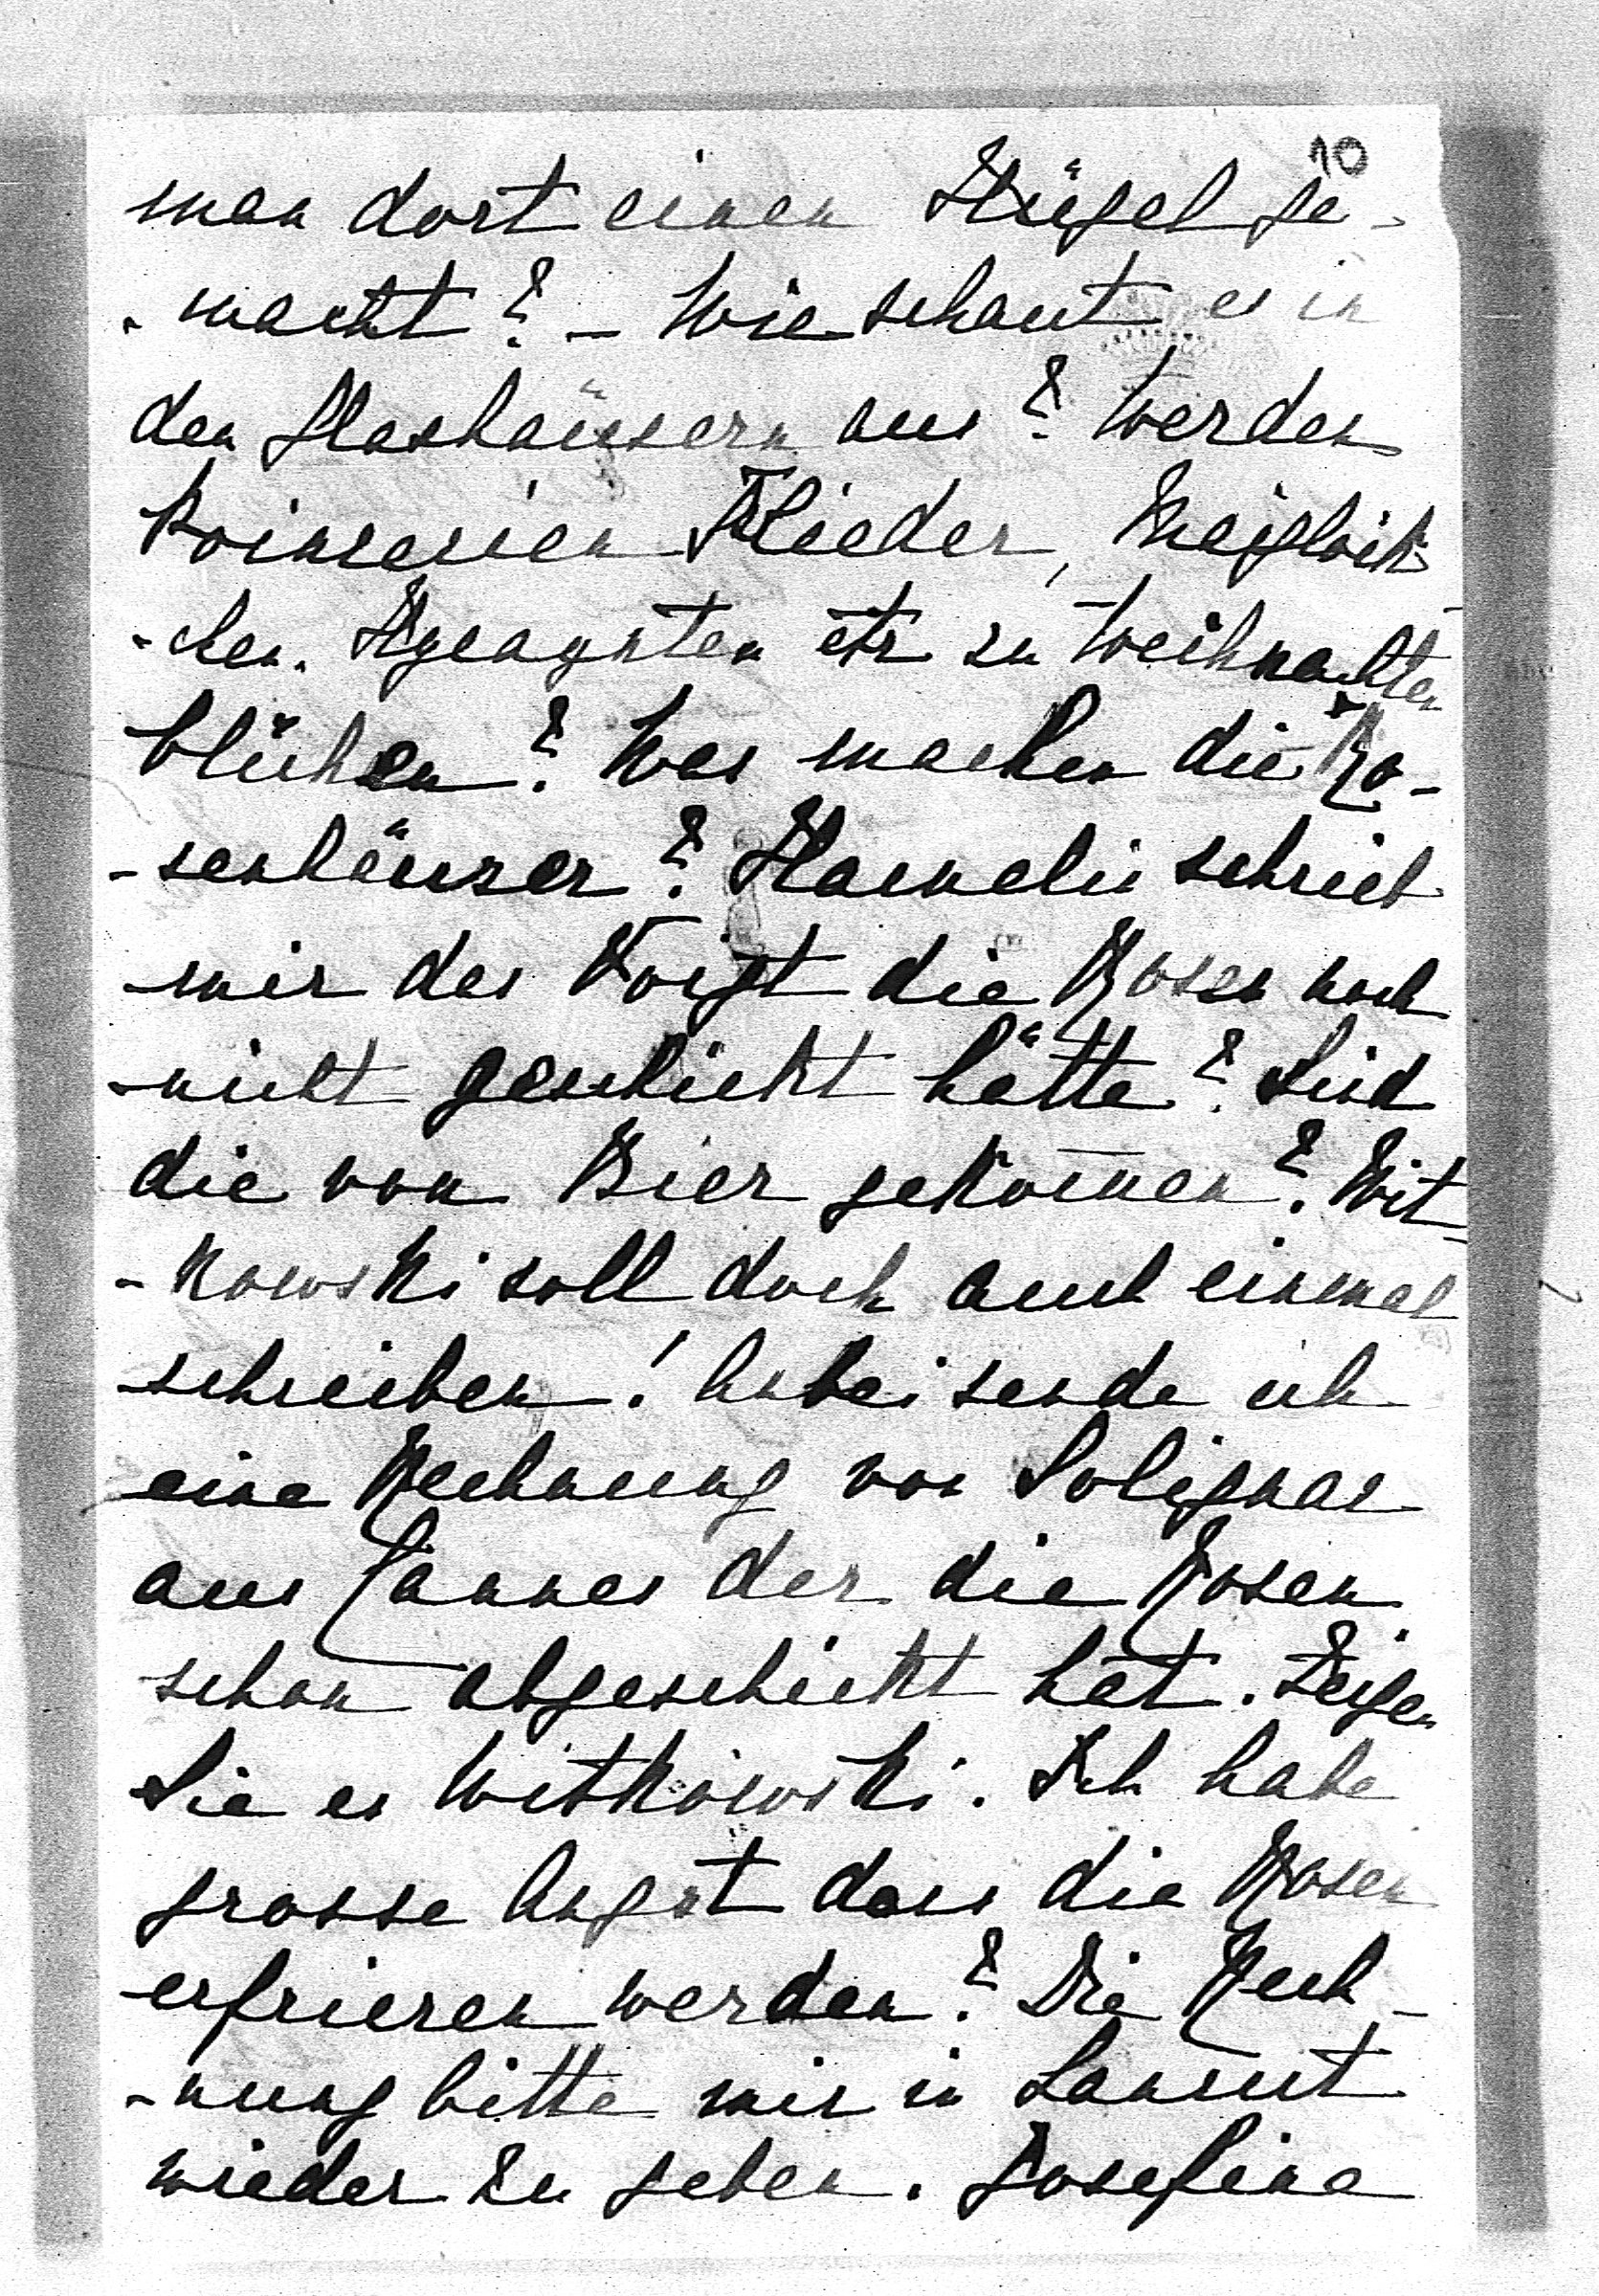 10
man dort einen Hügel ge-
-macht? - Wie schaut es in
den Glashäusern aus? Werden
Poinsesien Flieder, Meiglöck-
-chen. Hyeaynten etz zu Weihnachten
blühen? Was machen die Ro-
-senhäuser? Hamelii schrieb
mir das Voigt die Rosen noch
nicht geschickt hätte? Sind
die von Bier gekom̄en? Wit-
-kowski soll doch auch einmal
schreiben! Anbei sende ich
eine Rechnung von Solignac
aus Cannes der die Rosen
schon abgeschickt hat. Zeigen
Sie es Witkowski. Ich habe
grosse Angst dass die Rosen
erfrieren werden? Die Rech-
-nung bitte mir in Lancut
wieder zu geben. Josefine